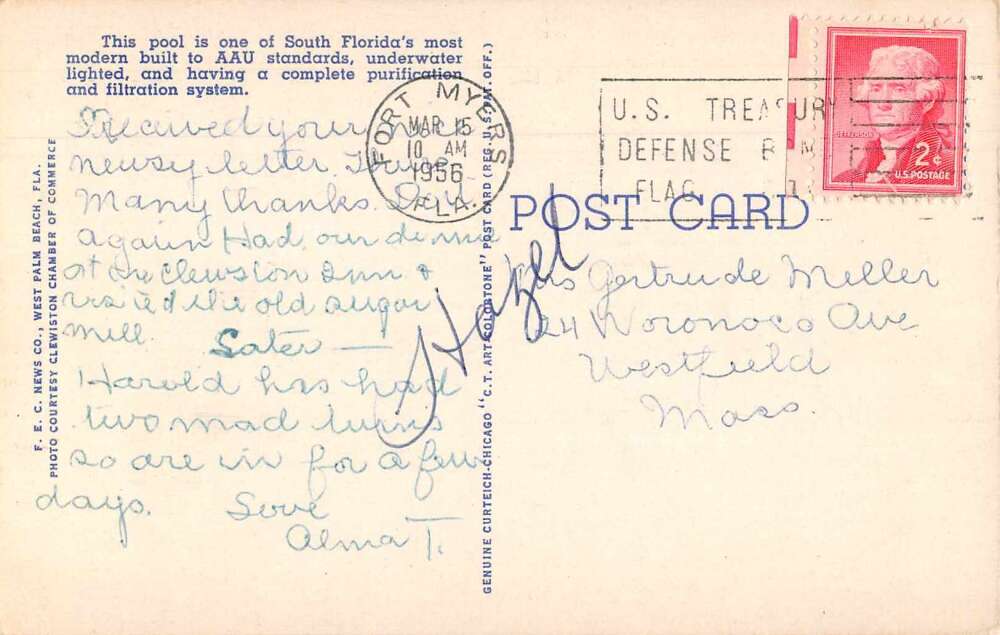 This pool is one of South Florida's most
modern built to AAU standards, underwater
lighted, and having a complete purification
and filtration system.
Received your
newsy letter
Many thanks.
again Had our dinner
at the Clewston Inn &
visited the old sugar
mill. Later —
Harold has had
two mad turns
so are in for a few
days. Love
Alma T.
Hazel
F. E. C. NEWS CO., WEST PALM BEACH, FLA.
PHOTO COURTESY CLEWISTON CHAMBER OF COMMERCE
GENUINE CURTEICH-CHICAGO "C.T. ART-COLORTONE" POST CARD (REG. U.S. PAT. OFF.)
FORT MYERS
MAR 15
10 AM
1956
FLA.
U.S. TREASURY
DEFENSE
FLAG
JEFFERSON
2¢
U.S. POSTAGE
POST CARD
Mrs Gertrude Meller
24 Woronoco Ave
Westfield
Mass.